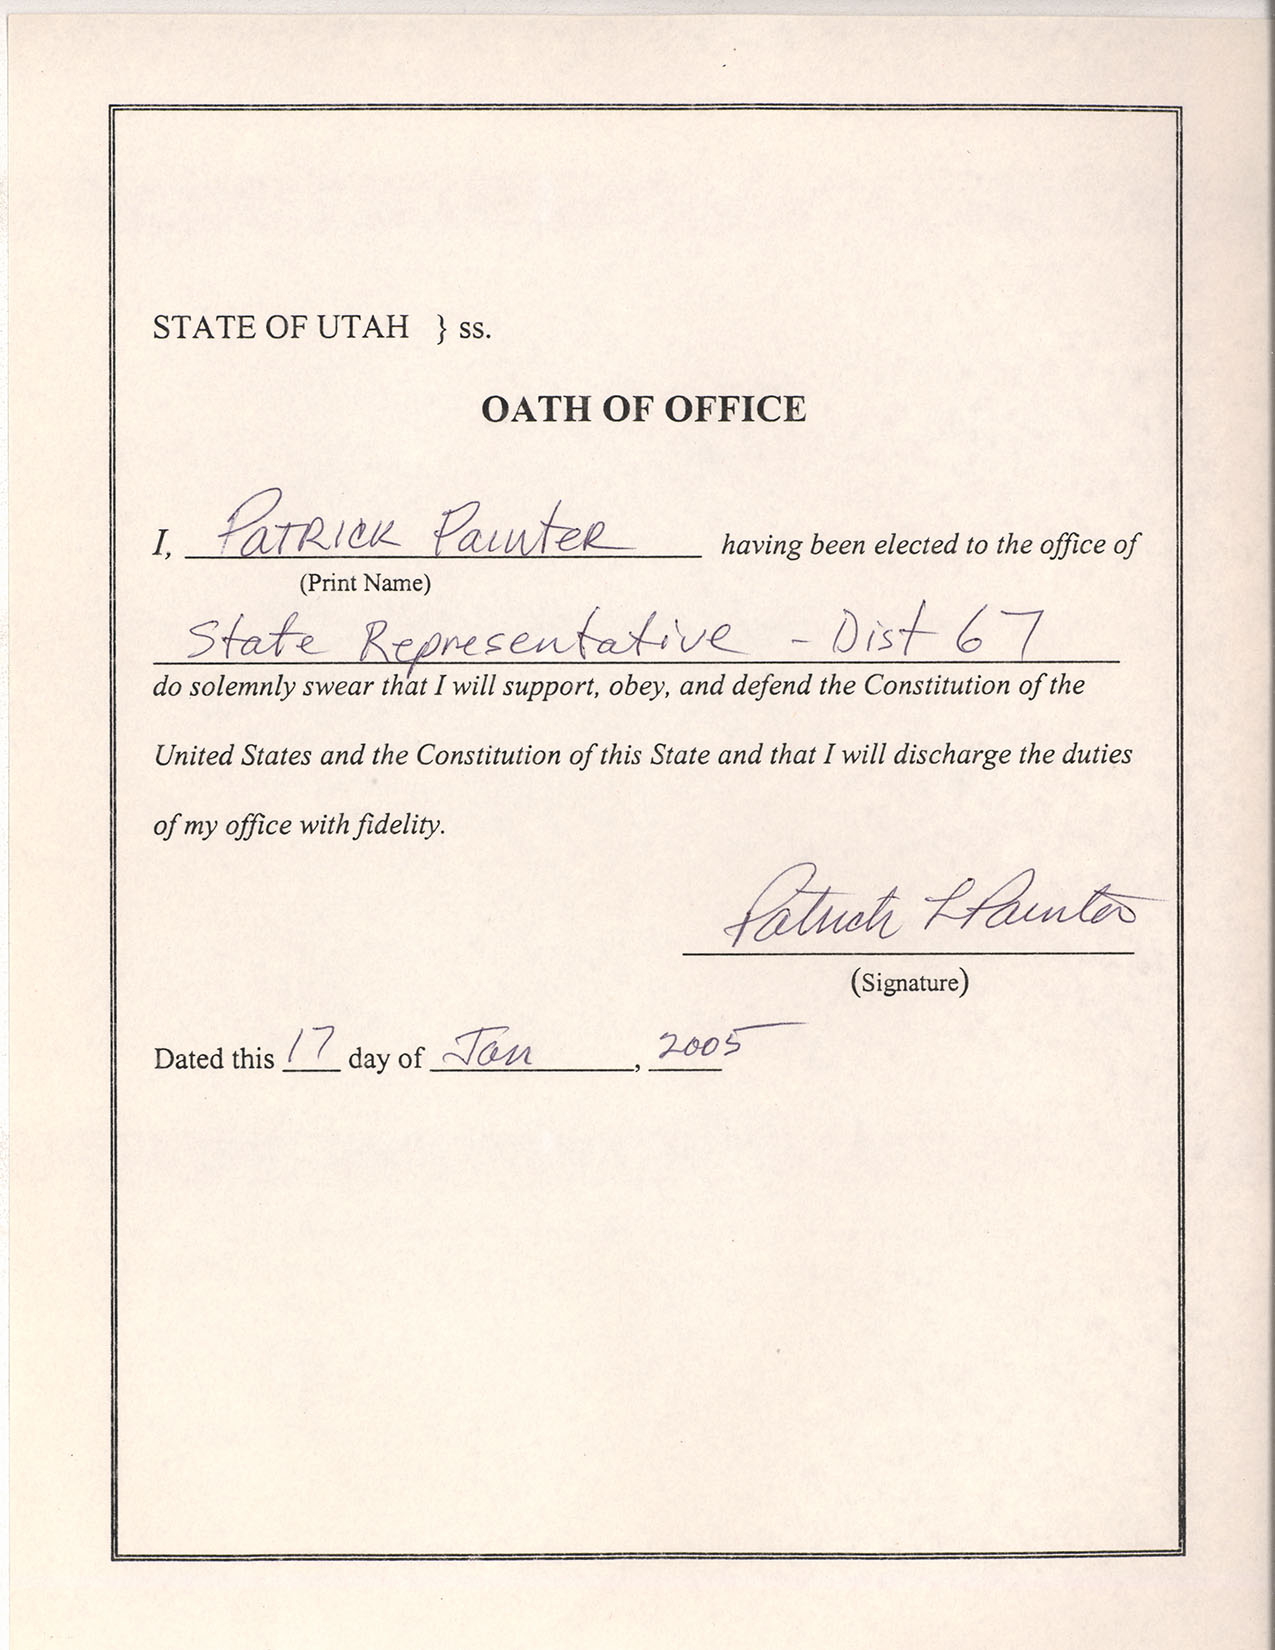 STATE OF UTAH } ss.
OATH OF OFFICE
I, PATRICK PAINTER having been elected to the office of
(Print Name)
State Representative - Dist 67
do solemnly swear that I will support, obey, and defend the Constitution of the
United States and the Constitution of this State and that I will discharge the duties
of my office with fidelity.
Patrick L Painter
(Signature)
Dated this 17 day of Jan, 2005